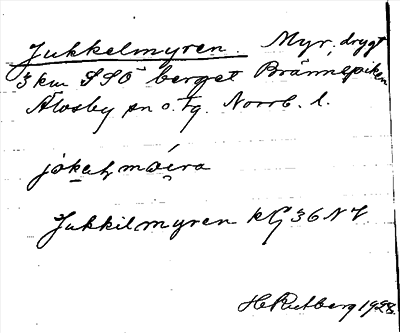 Jukkelmyren. Myr, drygt
3 km SSO berget Brännspiken
Älvsby sn o. tg. Norrb. l.
Jukkilmyren kG 36 NV
H Rutberg 1928.